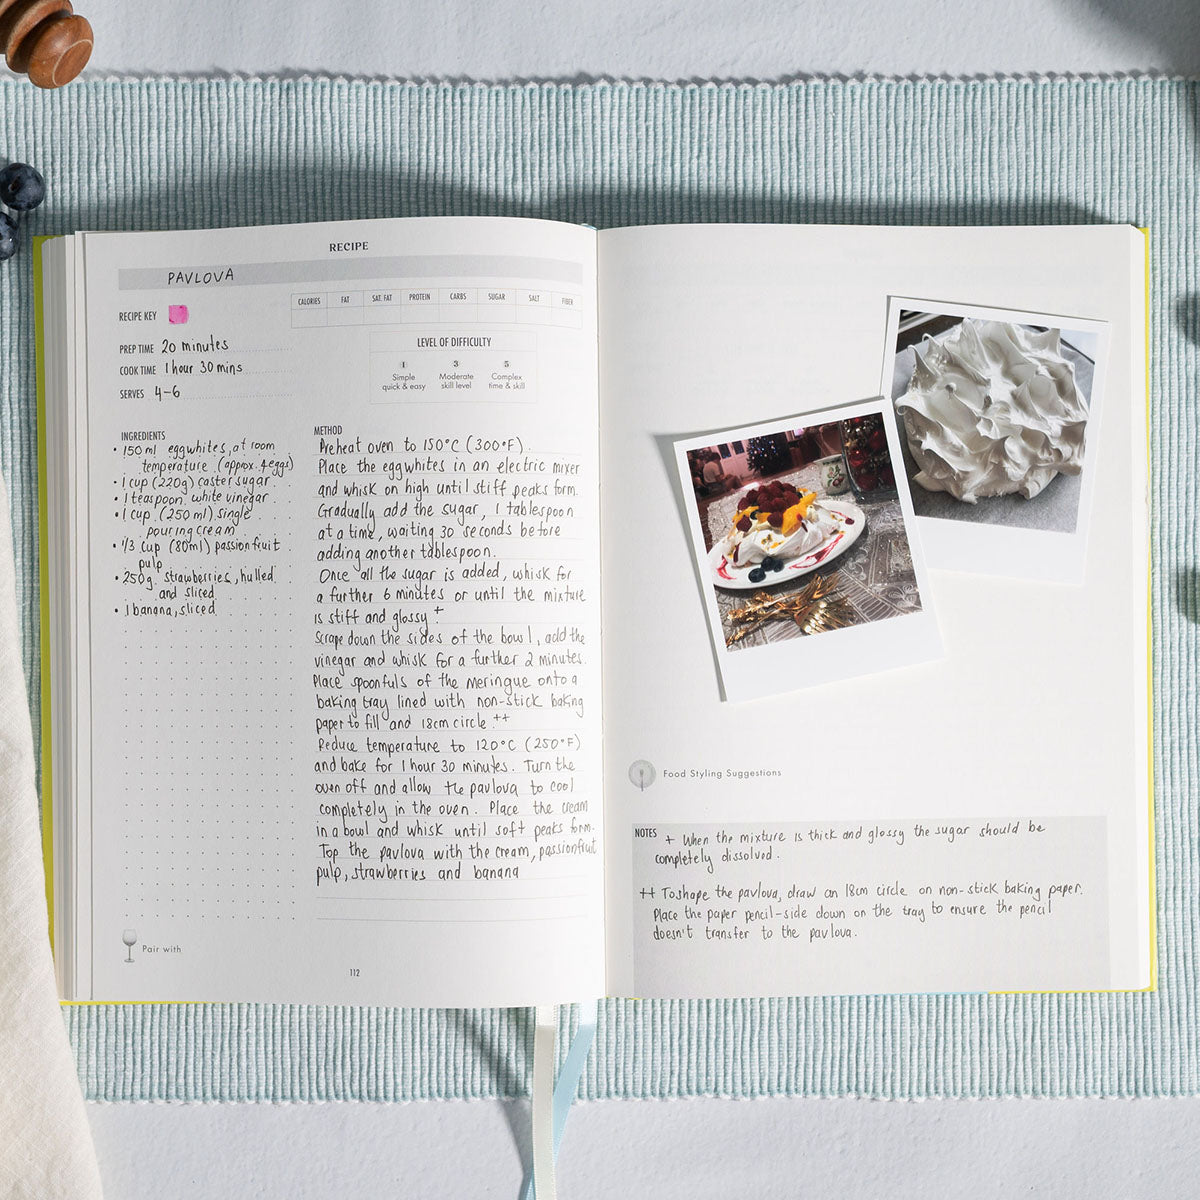 RECIPE
PAVLOVA
RECIPE KEY
CALORIES FAT SAT. FAT PROTEIN CARBS SUGAR SALT FIBER
PREP TIME 20 minutes
COOK TIME 1 hour 30 mins
SERVES 4-6
LEVEL OF DIFFICULTY
1 3 5
Simple Moderate Complex
quick & easy skill level time & skill
INGREDIENTS
• 150ml eggwhites, at room
temperature (approx. 4 eggs)
• 1 cup (220g) caster sugar
• 1 teaspoon white vinegar
• 1 cup (250ml) single
pouring cream
• 1/3 cup (80ml) passionfruit
pulp
• 250g strawberries, hulled
and sliced
• 1 banana, sliced
METHOD
Preheat oven to 150°C (300°F).
Place the eggwhites in an electric mixer
and whisk on high until stiff peaks form.
Gradually add the sugar, 1 tablespoon
at a time, waiting 30 seconds before
adding another tablespoon.
Once all the sugar is added, whisk for
a further 6 minutes or until the mixture
is stiff and glossy +
Scrape down the sides of the bowl, add the
vinegar and whisk for a further 2 minutes.
Place spoonfuls of the meringue onto a
baking tray lined with non-stick baking
paper to fill and 18cm circle. ++
Reduce temperature to 120°C (250°F)
and bake for 1 hour 30 minutes. Turn the
oven off and allow the pavlova to cool
completely in the oven. Place the cream
in a bowl and whisk until soft peaks form.
Top the pavlova with the cream, passionfruit
pulp, strawberries and banana
Pair with
112
Food Styling Suggestions
NOTES + When the mixture is thick and glossy the sugar should be
completely dissolved.
++ To shape the pavlova, draw an 18cm circle on non-stick baking paper.
Place the paper pencil-side down on the tray to ensure the pencil
doesn't transfer to the pavlova.